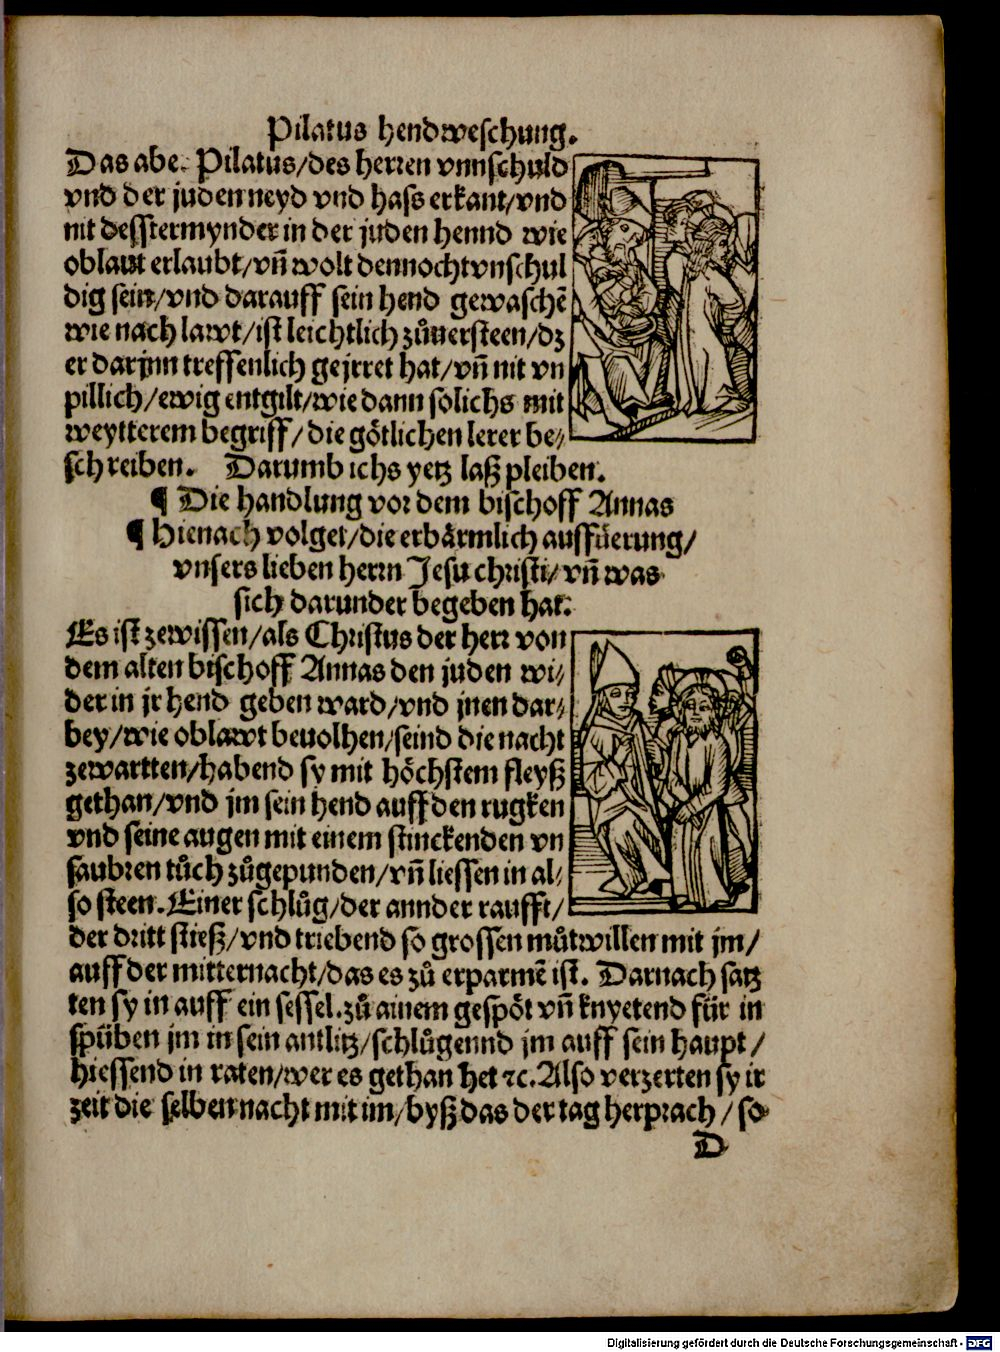 Pilatus hendweschung.
Das abe. Pilatus/des herren vnnschuld
vnd der juden neyd vnd hass erkant/vnd
nit desstermynder in der juden hennd wie
oblaut erlaubt/vñ wolt dennocht vnschul
dig sein/vnd darauff sein hend gewaschē
wie nach lawt/ist leichtlich zůuersteen/dz
er darjnn treffenlich gejrret hat/vñ nit vn
pillich/ewig entgilt/wie dann solichs mit
weytterem begriff/die götlichen lerer be⸗
schreiben. Darumb ichs yetz laß pleiben.
¶ Die handlung vor dem bischoff Annas
¶ Hienach volget/die erbärmlich auffüerung/
vnsers lieben herrn Jesu christi/vñ was
sich darunder begeben hat.
Es ist zewissen/als Christus der herr von
dem alten bischoff Annas den juden wi⸗
der in jr hend geben ward/vnd jnen dar⸗
bey/wie oblawt beuolhen/seind die nacht
zewartten/habend sy mit höchstem fleyß
gethan/vnd jm sein hend auff den rugken
vnd seine augen mit einem stinckenden vn
saubren tůch zůgepunden/vñ liessen in al⸗
so steen. Einer schlůg/der annder raufft/
der dritt stieß/vnd triebend so grossen můtwillen mit jm/
auff der mitternacht/das es zů erparmē ist. Darnach satz
ten sy in auff ein sessel.zů ainem gespöt vñ knyetend für in
spüben jm in sein antlitz/schlůgennd jm auff sein haupt/
hiessend in raten/wer es gethan het ⁊c. Also verzerten sy ir
zeit die selben nacht mit im/byß das der tag herprach/so
D
Digitalisierung gefördert durch die Deutsche Forschungsgemeinschaft - DFG